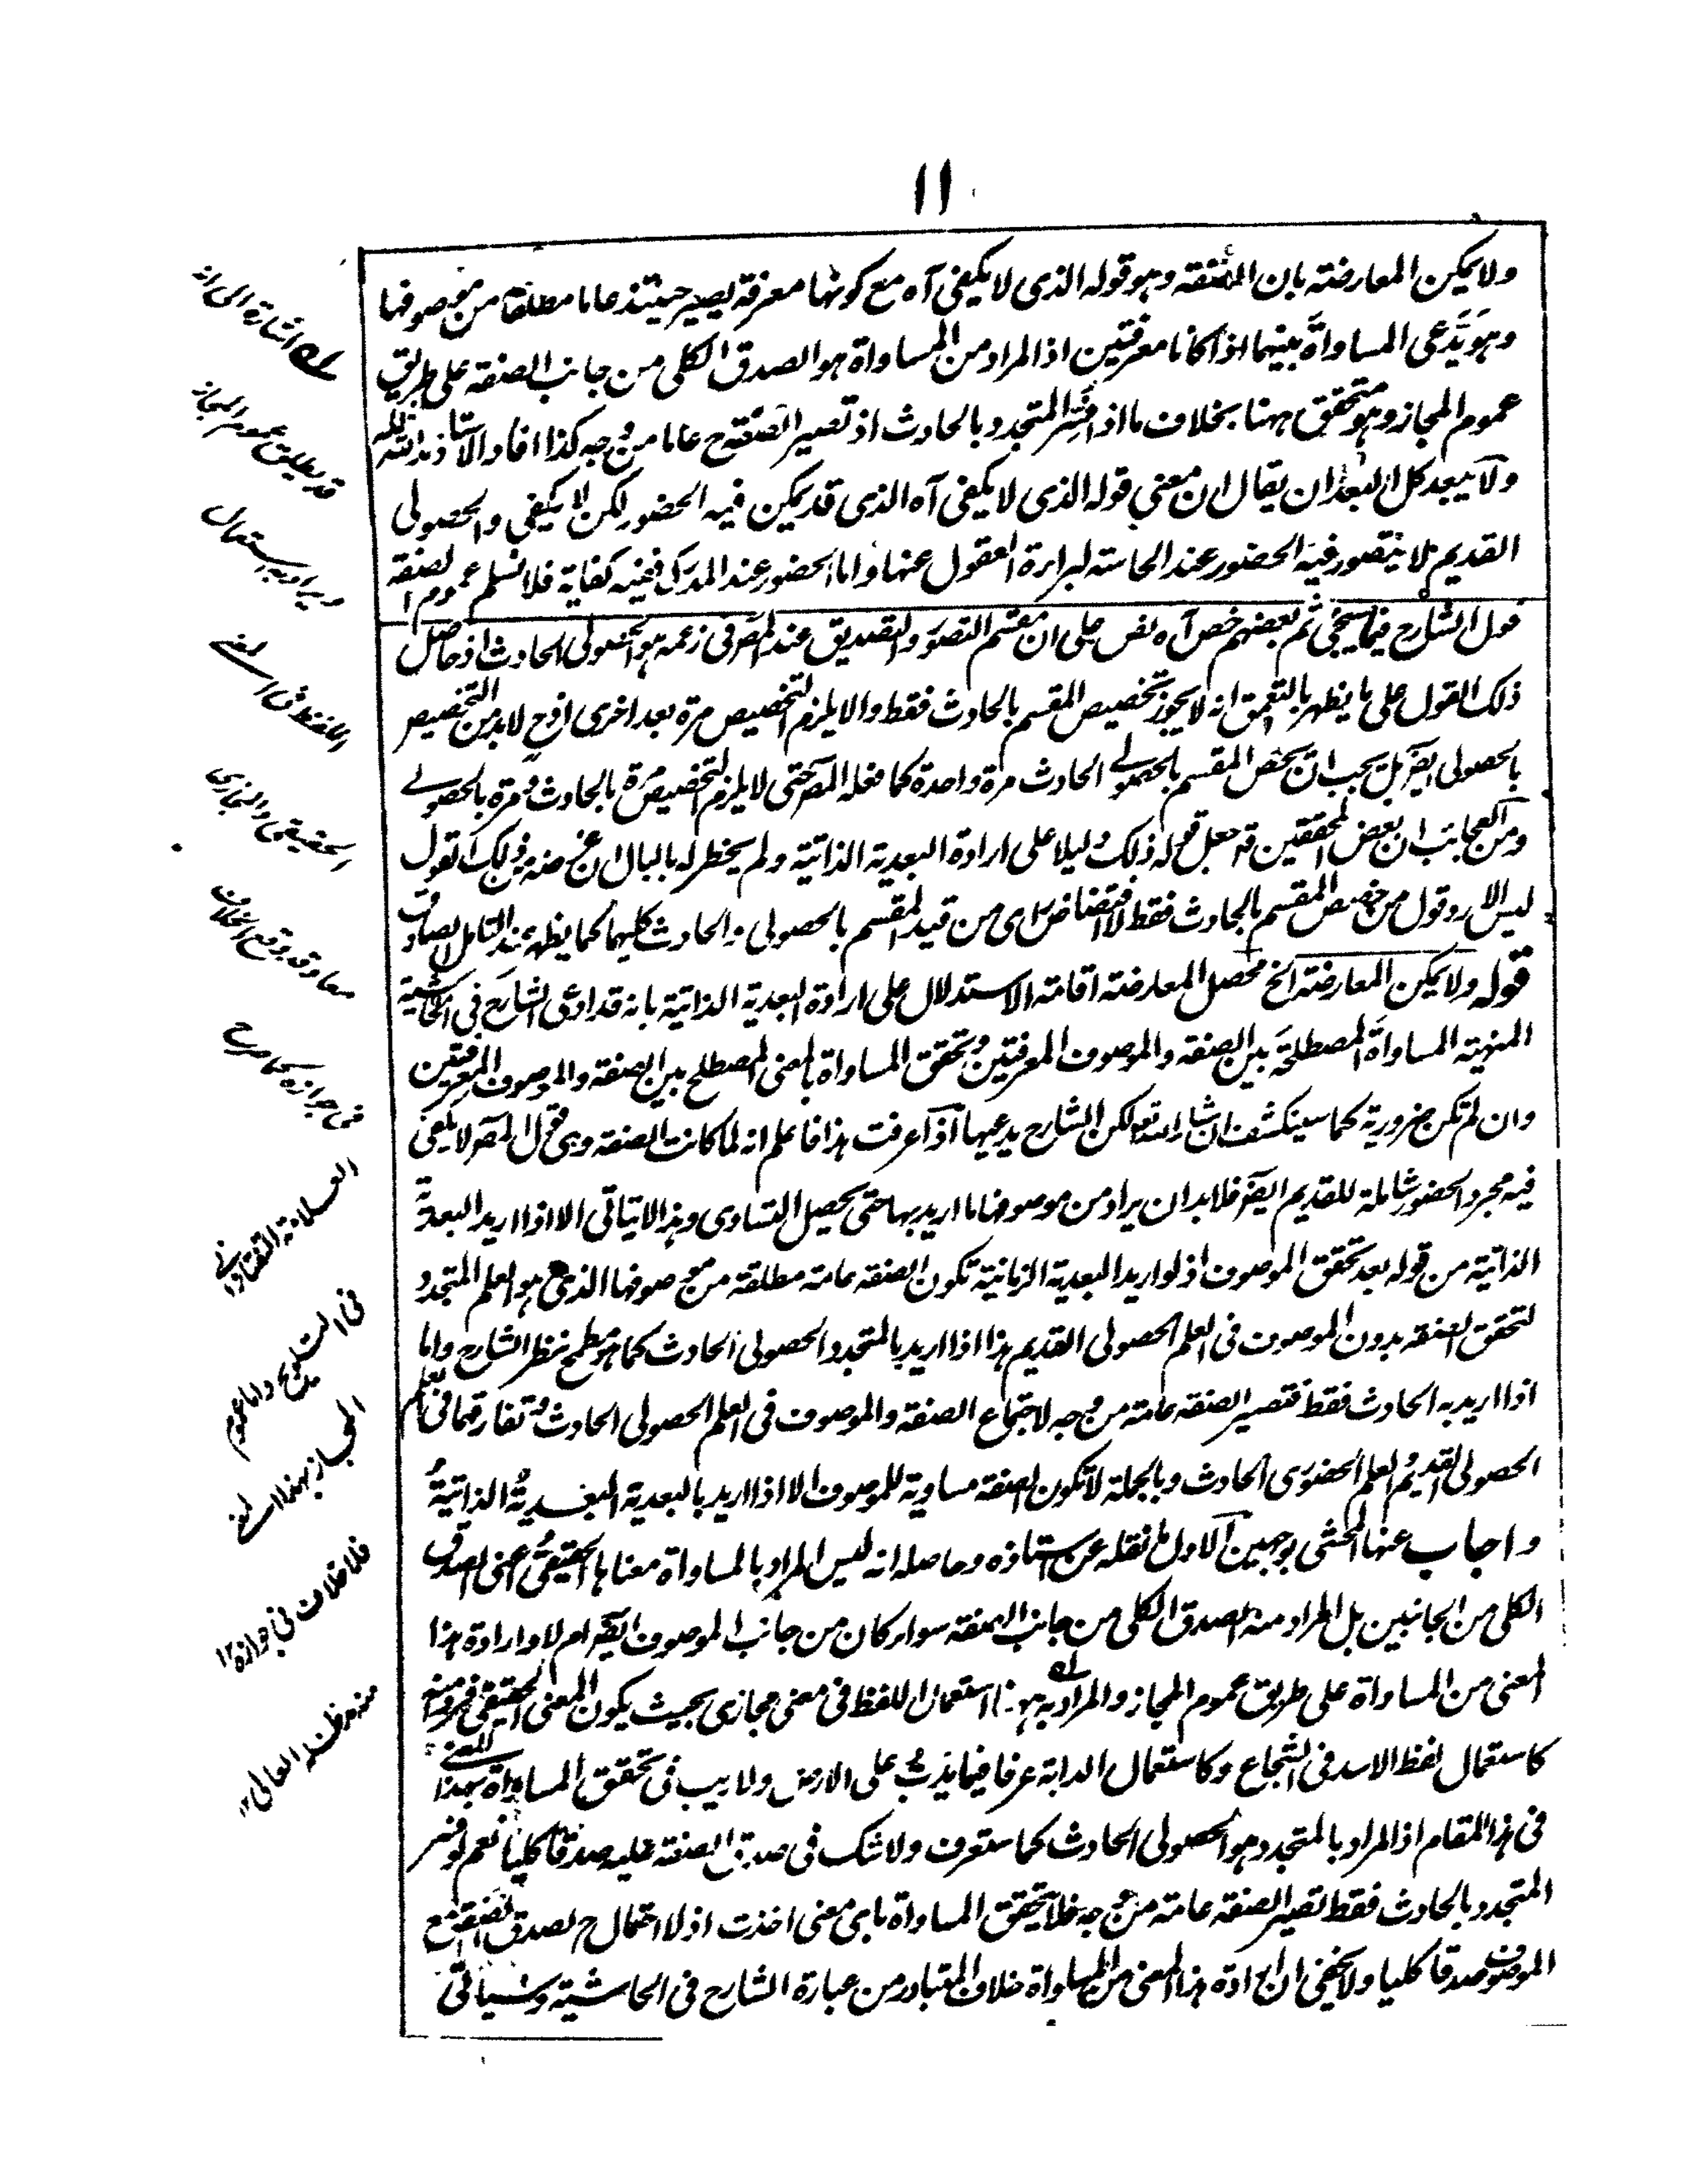 ١١
ولا يمكن المعارضة بان الصفة وهو قوله الذى لا يكفى آه مع كونها معرفة يصير حينئذ عاما مطلقا من موصوفها
وهو يدعى المساواة بينهما اذا كانا معرفتين اذ المراد من المساواة هو الصدق الكلى من جانب الصفة على طريق
عموم المجاز وهو متحقق ههنا بخلاف ما اذا فسر المتجدد بالحادث اذ تصير الصفة ح عاما من وجه كذا افاد الاستاذ مد ظله
ولا يبعد كل البعد ان يقال ان معنى قوله الذى لا يكفى آه الذى قد يمكن فيه الحضور لكن لا يكفى والحصولى
القديم لا يتصور فيه الحضور عند الحاسة لبراءة العقول عنها واما الحضور عند المدرك ففيه كفاية فلا نسلم عموم الصفة
قول الشارح فيما سيجئ ثم بعضهم خص آه نص على ان مقسم التصور والتصديق عند المص فى زعمه هو الحصولى الحادث اذ حاصل
ذلك القول على ما يظهر بالتعمق انه لا يجوز تخصيص المقسم بالحادث فقط والا يلزم التخصيص مرة بعد اخرى اذ ح لا بد من التخصيص
بالحصولى ايضا بل يجب ان يخص المقسم بالحصولى الحادث مرة واحدة كما فعله المص حتى لا يلزم التخصيص مرة بالحادث ومرة بالحصولى
ومن العجائب ان بعض المحققين قد جعل قوله ذلك دليلا على ارادة البعدية الذاتية ولم يخطر له بالبال ان غرضه من ذلك القول
ليس الا رد قول من خصص المقسم بالحادث فقط لا من قيد المقسم بالحصولى والحادث كليهما كما يظهر عند التامل الصادق
قوله ولا يمكن المعارضة الخ محصل المعارضة اقامة الاستدلال على ارادة البعدية الذاتية بانه قد ادعى الشارح فى الحاشية
المنهية المساواة المصطلحة بين الصفة والموصوف المعرفتين وتحقق المساواة بالمعنى المصطلح بين الصفة والموصوف المعرفتين
وان لم تكن ضرورية كما سينكشف ان شاء الله تعالى لكن الشارح يدعيها اذا عرفت هذا فاعلم انه لما كانت الصفة وهى قول المص لا يكفى
فيه مجرد الحضور شاملة للقديم ايضا فلا بد ان يراد من موصوفها ما اريد بها حتى يحصل التساوى وهذا لا يتاتى الا اذا اريد البعدية
الذاتية من قوله بعد تحقق الموصوف اذ لو اريد البعدية الزمانية تكون الصفة عامة مطلقة من موصوفها الذى هو العلم المتجدد
لتحقق الصفة بدون الموصوف فى العلم الحصولى القديم هذا اذا اريد بالمتجدد الحصولى الحادث كما هو مطمح نظر الشارح واما
اذا اريد به الحادث فقط فتصير الصفة عامة من وجه لاجتماع الصفة والموصوف فى العلم الحصولى الحادث وتفارقهما فى العلم
الحصولى القديم والعلم الحضورى الحادث وبالجملة لا تكون الصفة مساوية للموصوف الا اذا اريد بالبعدية البعدية الذاتية
واجاب عنها المحشى بوجهين الاول ما نقله عن استاذه وحاصله انه ليس المراد بالمساواة معناها الحقيقى اعنى الصدق
الكلى من الجانبين بل المراد منه الصدق الكلى من جانب الصفة سواء كان من جانب الموصوف ايضا ام لا وارادة هذا
المعنى من المساواة على طريق عموم المجاز والمراد به ههنا استعمال اللفظ فى معنى مجازى بحيث يكون المعنى الحقيقى فردا منه
كاستعمال لفظ الاسد فى الشجاع وكاستعمال الدابة عرفا فيما يدب على الارض ولا ريب فى تحقق المساواة بهذا المعنى
فى هذا المقام اذ المراد بالمتجدد هو الحصولى الحادث كما ستعرف ولا شك فى صدق الصفة عليه صدقا كليا نعم لو فسر
المتجدد بالحادث فقط تصير الصفة عامة من وجه فلا يتحقق المساواة باى معنى اخذت اذ لا احتمال ح لصدق الصفة مع
الموصوف صدقا كليا ولا يخفى ان ارادة هذا المعنى من المساواة خلاف المتبادر من عبارة الشارح فى الحاشية وسياتى
له اشارة الى انه
قد يطلق عموم المجاز
ويراد به استعمال
اللفظ فى المعنى
الحقيقى والمجازى
معا وقد وقع الخلاف
فى جوازه كما صرح
العلامة التفتازانى
فى التلويح واما عموم
المجاز بهذا المعنى
فلا خلاف فى جوازه ١٢
منه مد ظله العالى ١٢